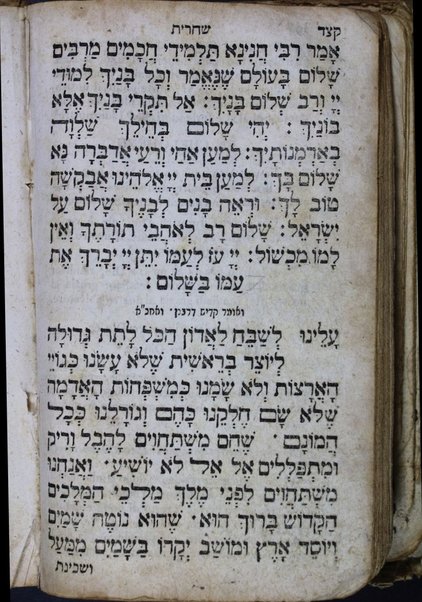 קצד שחרית
אָמַר רַבִּי חֲנִינָא תַּלְמִידֵי חֲכָמִים מַרְבִּים
שָׁלוֹם בָּעוֹלָם שֶׁנֶּאֱמַר וְכָל בָּנַיִךְ לִמּוּדֵי
יְיָ וְרַב שְׁלוֹם בָּנָיִךְ: אַל תִּקְרֵי בָּנַיִךְ אֶלָּא
בּוֹנַיִךְ: יְהִי שָׁלוֹם בְּחֵילֵךְ שַׁלְוָה
בְאַרְמְנוֹתָיִךְ: לְמַעַן אַחַי וְרֵעָי אֲדַבְּרָה נָא
שָׁלוֹם בָּךְ: לְמַעַן בֵּית יְיָ אֱלֹהֵינוּ אֲבַקְשָׁה
טוֹב לָךְ: וּרְאֵה בָנִים לְבָנֶיךָ שָׁלוֹם עַל
יִשְׂרָאֵל: שָׁלוֹם רָב לְאֹהֲבֵי תוֹרָתֶךָ וְאֵין
לָמוֹ מִכְשׁוֹל: יְיָ עֹז לְעַמּוֹ יִתֵּן יְיָ יְבָרֵךְ אֶת
עַמּוֹ בַשָּׁלוֹם:
ואומר קדיש דרבנן· ואחכ"א
עָלֵינוּ לְשַׁבֵּחַ לַאֲדוֹן הַכֹּל לָתֵת גְּדוּלָּה
לְיוֹצֵר בְּרֵאשִׁית שֶׁלֹּא עָשָׂנוּ כְּגוֹיֵי
הָאֲרָצוֹת וְלֹא שָׂמָנוּ כְּמִשְׁפְּחוֹת הָאֲדָמָה
שֶׁלֹּא שָׂם חֶלְקֵנוּ כָּהֶם וְגוֹרָלֵנוּ כְּכָל
הֲמוֹנָם· שֶׁהֵם מִשְׁתַּחֲוִים לָהֶבֶל וָרִיק
וּמִתְפַּלְלִים אֶל אֵל לֹא יוֹשִׁיעַ· וַאֲנַחְנוּ
מִשְׁתַּחֲוִים לִפְנֵי מֶלֶךְ מַלְכֵי הַמְּלָכִים
הַקָּדוֹשׁ בָּרוּךְ הוּא· שֶׁהוּא נוֹטֶה שָׁמַיִם
וְיוֹסֵד אָרֶץ וּמוֹשַׁב יְקָרוֹ בַּשָּׁמַיִם מִמַּעַל
ושכינת